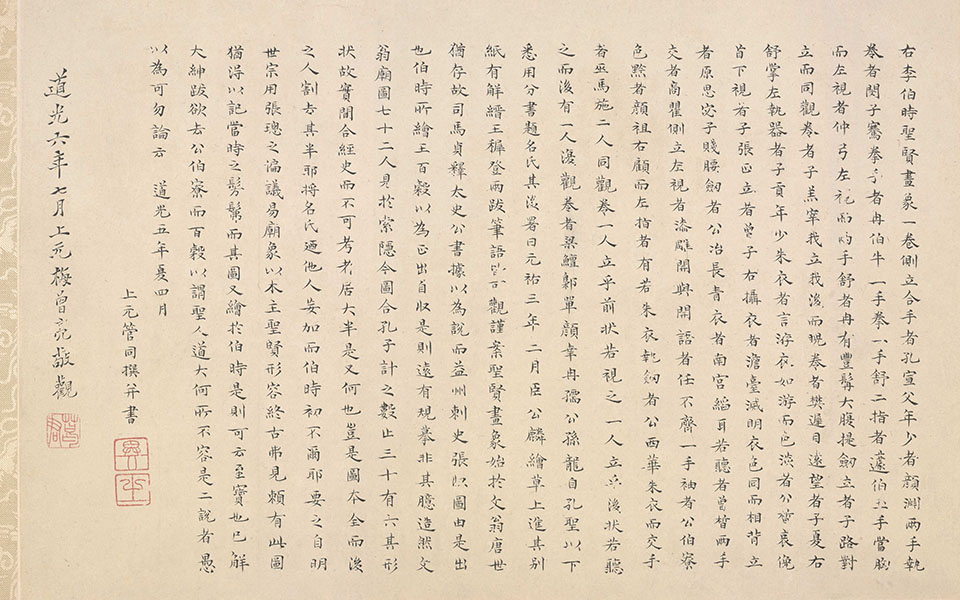 右李伯時聖賢畫象一卷側立合手者孔宣父年少者顏淵兩手執
卷者閔子騫拳手者冉伯牛一手拳一手舒二指者蘧伯玉手當胸
而左視者仲弓左右手舒者冉有豐髯大腹提劍立者子路對
立而同觀卷者子羔宰我立我後而視卷者樊遲目遂望者子夏右
舒掌左執器者子貢年少朱衣者言游衣如游而色淡者公晳哀俛
首下視者子張正立者曾子右攝衣者澹臺滅明衣色同而相背立
者原思宓子賤腰劍者公冶長青衣者南宮縚耳若聽者曾晳兩手
交者商瞿側立左視者漆雕開與開語者任不齊一手袖者公伯寮
色黔者顏祖右顧而左指者有若朱衣執劍者公西華朱衣而交手
者巫馬施二人同觀卷一人立乎前狀若視之一人立其後狀若聽
之而後有一人復觀卷者梁鱣鄡單顏幸冉孺公孫龍自孔聖以下
悉用分書題名氏其後署曰元祐三年二月臣公麟繪草上進其別
紙有解縉王穉登兩跋筆語皆可觀謹案聖賢畫象始於文翁唐世
猶存故司馬貞釋太史公書據以為說而益州刺史張收圖由是出
也伯時所繪王百穀以為正出自收是則遠有規摹非其臆造然文
翁廟圖七十二人見於索隱今圖合孔子計之數止三十有六其形
狀故實閒合經史而不可考者居大半是又何也豈是圖本全而後
之人割去其半耶將名氏迺他人妄加而伯時初不爾耶要之自明
世宗用張璁之偏議易廟象以木主聖賢形容終古弗見賴有此圖
猶得以記當時之髣髴而其圖又繪於伯時是則可云至寶也已解
大紳跋欲去公伯寮而百穀以謂聖人道大何所不容是二說者愚
以為可勿論云　道光五年夏四月
上元管同撰并書
道光六年七月上元梅曾亮敬觀